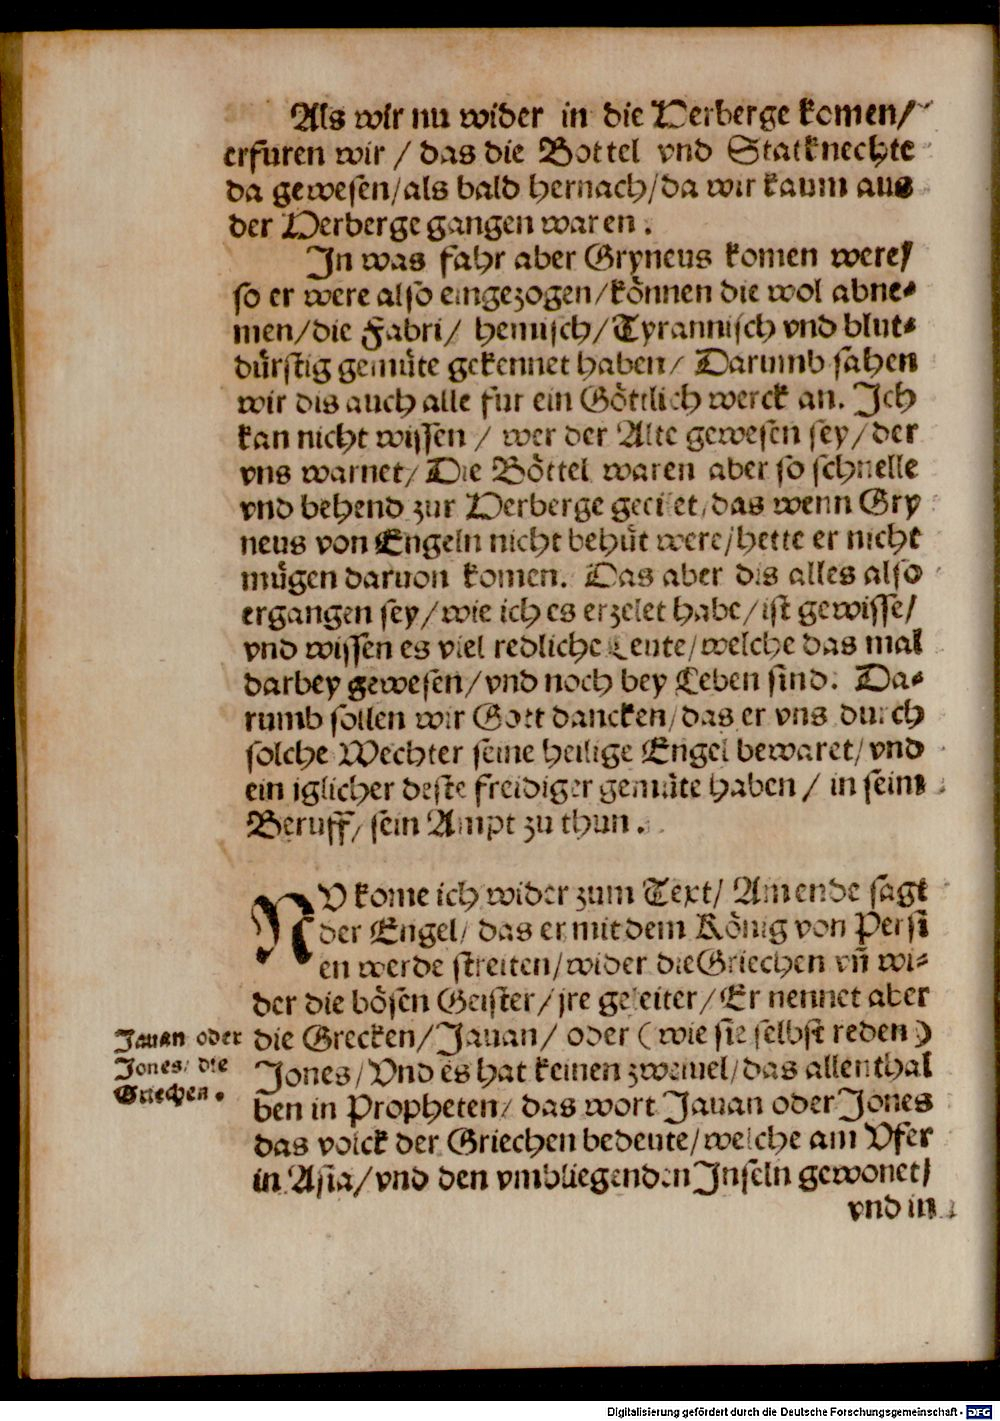 Als wir nu wider in die Herberge komen/
erfuren wir / das die Bottel vnd Statknechte
da gewesen/als bald hernach/da wir kaum aus
der Herberge gangen waren.
In was fahr aber Gryneus komen were/
so er were also eingezogen/können die wol abne-
men/die Fabri/ hemisch/Tyrannisch vnd blut-
dürstig gemüte gekennet haben/ Darumb sahen
wir dis auch alle fur ein Göttlich werck an. Ich
kan nicht wissen / wer der Alte gewesen sey/der
vns warnet/ Die Böttel waren aber so schnelle
vnd behend zur Herberge geeilet/das wenn Gry
neus von Engeln nicht behüt were/hette er nicht
mügen daruon komen. Das aber dis alles also
ergangen sey/wie ich es erzelet habe/ist gewisse/
vnd wissen es viel redliche Leute/welche das mal
darbey gewesen/vnd noch bey Leben sind. Da-
rumb sollen wir Gott dancken/das er vns durch
solche Wechter seine heilige Engel bewaret/vnd
ein iglicher deste freidiger gemüte haben / in seim
Beruff/sein Ampt zu thun.
NV kome ich wider zum Text/ Am ende sagt
der Engel/ das er mit dem König von Persi
en werde streiten/wider die Griechen vñ wi-
der die bösen Geister/jre geleiter/Er nennet aber
die Grecken/Jauan/ oder (wie sie selbst reden)
Jones/Vnd es hat keinen zweiuel/das allenthal
ben in Propheten/ das wort Jauan oder Jones
das volck der Griechen bedeute/welche am Vfer
in Asia/vnd den vmbliegenden Inseln gewonet/
vnd in
Jauan oder
Jones/ die
Griechen.
Digitalisierung gefördert durch die Deutsche Forschungsgemeinschaft - DFG